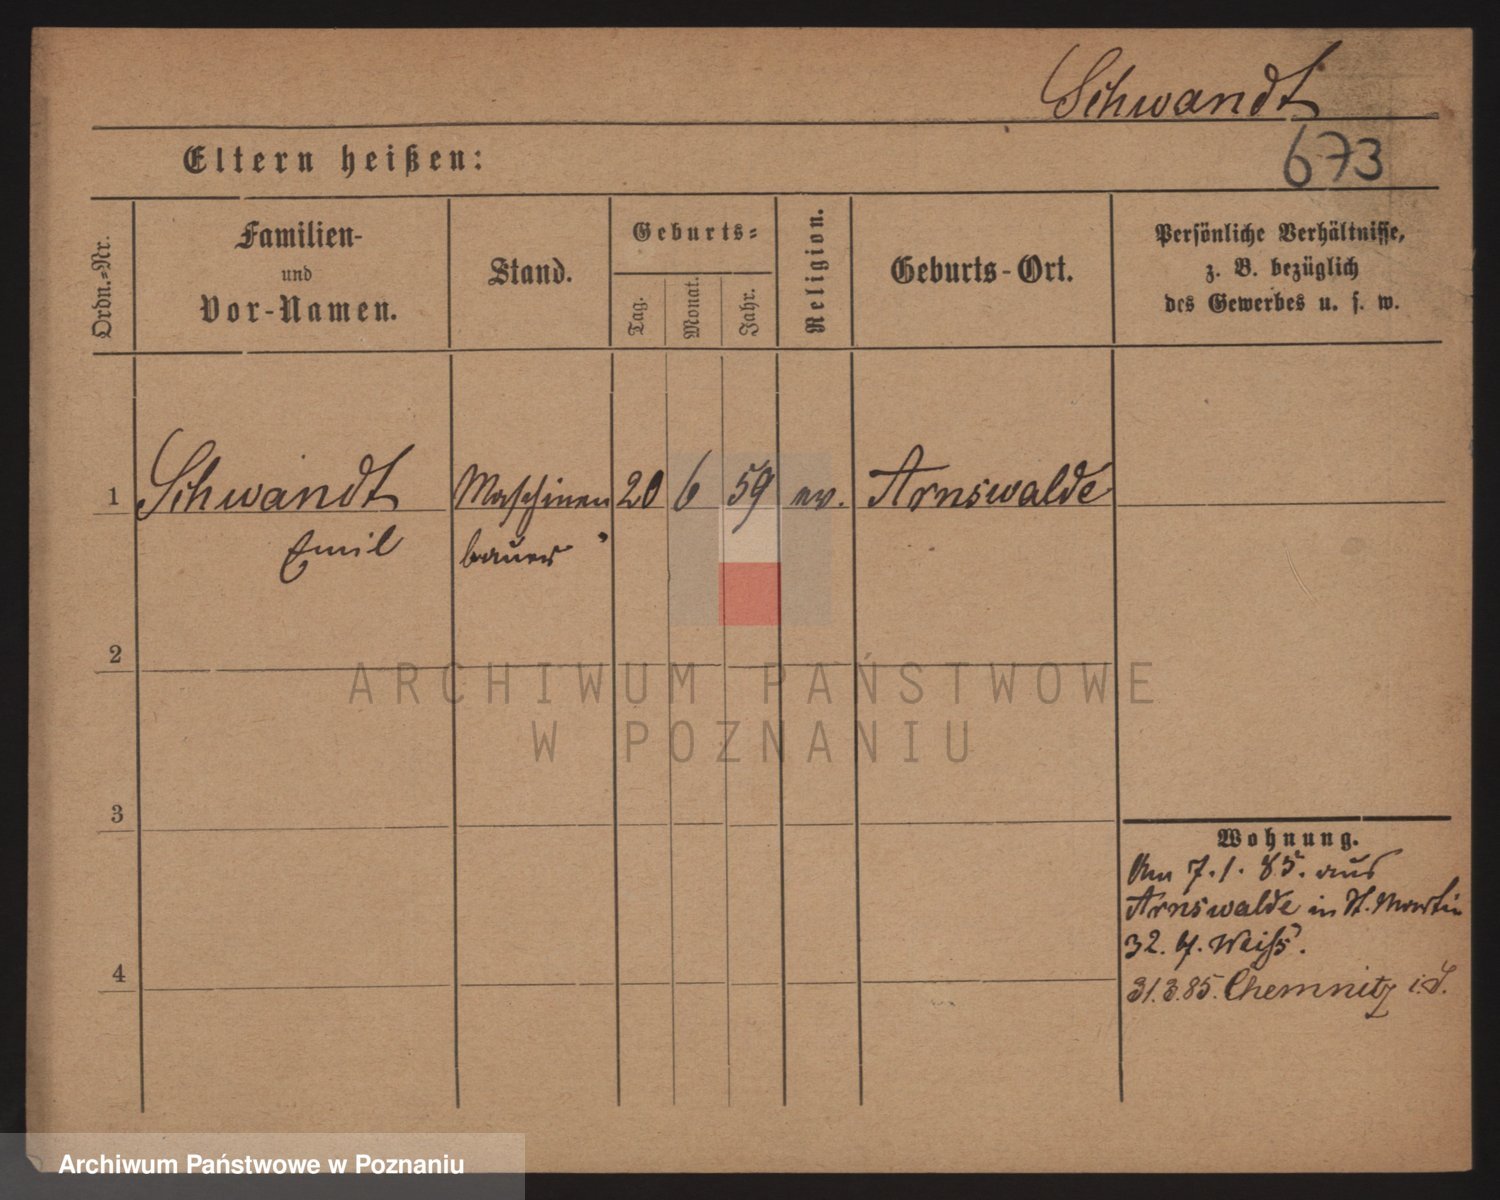 Schwandt
673
Eltern heißen:
Ordn.-Nr.
Familien-
und
Vor-Namen.
Stand.
Geburts-
Tag.
Monat.
Jahr.
Religion.
Geburts-Ort.
Persönliche Verhältnisse,
z. B. bezüglich
des Gewerbes u. s. w.
1 Schwandt Maschinen 20 6 59 ev. Arnswalde
Emil bauer
2
ARCHIWUM PAŃSTWOWE
W POZNANIU
3
Wohnung.
Am 7.1.85. aus
Arnswalde in St. Martin
32. b. Weiß.
4
31.3.85. Chemnitz i. S.
Archiwum Państwowe w Poznaniu